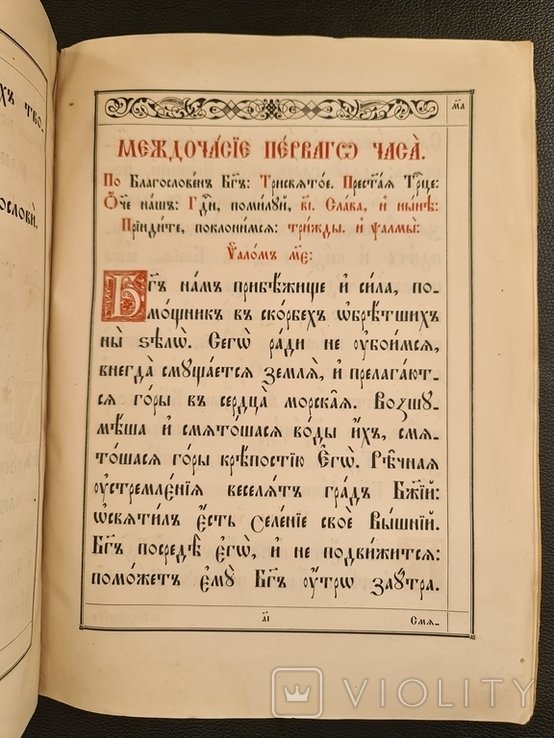 хъ тво-
ослови́.
м҃а
МЕЖДОЧА́СІЕ ПЕ́РВАГѠ ЧАСА̀.
По Благослове́нъ Бг҃ъ: Трисвято́е. Прест҃а́я Тр҃це:
Ѻ҆́ч҃е на́шъ: Гд҇и, поми́луй, в҃і. Сла́ва, и҆ ны́нѣ:
Прїиди́те, поклони́мся: три́жды. и҆ ѱалмы̀:
Ѱало́мъ м҃е:
Бг҃ъ на́мъ прибѣ́жище и҆ си́ла, по-
мо́щникъ въ ско́рбехъ ѡ҆брѣ́тшихъ
ны̀ ѕѣлѡ̀. Сегѡ̀ ра́ди не ᲂу҆бои́мся,
внегда̀ смуща́ется землѧ̀, и҆ прелага́ют-
ся го́ры въ сердца̀ морска̑я. Возшу-
мѣ́ша и҆ смято́шася во́ды и҆́хъ, смя-
то́шася го́ры крѣ́постїю Є҆гѡ̀. Рѣ́чная
ᲂу҆стремлє́нїя веселя́тъ гра́дъ Бж҃їй:
ѡ҆святи́лъ є҆́сть Селе́нїе своѐ Вы́шнїй.
Бг҃ъ посредѣ̀ є҆гѡ̀, и҆ не подви́жится:
помо́жетъ є҆мꙋ̀ Бг҃ъ ᲂу҆́трѡ заꙋ́тра.
а҃і
Смя-
VIOLITY